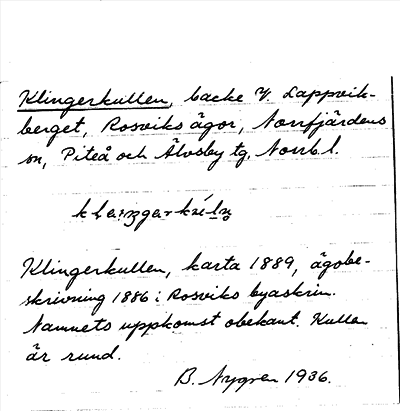 Klingerkullen, backe V. Lappvik-
berget, Rosviks ägor, Norrfjärdens
sn, Piteå och Älvsby tg. Norrb. l.
Klingerkullen, karta 1889, ägobe-
skrivning 1886 i Rosviks byaskrin.
Namnets uppkomst obekant. Kullen
är rund.
B. Nygren 1936.